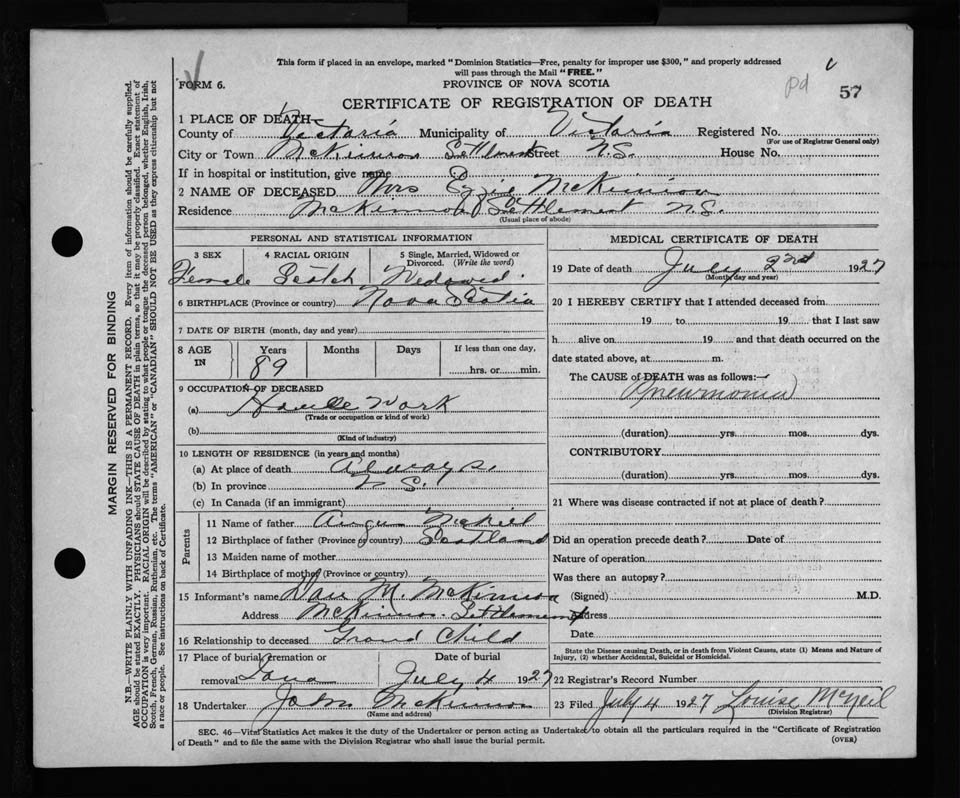 This form if placed in an envelope, marked "Dominion Statistics—Free, penalty for improper use $300," and properly addressed
will pass through the Mail "FREE."
pd
57
FORM 6.
PROVINCE OF NOVA SCOTIA
CERTIFICATE OF REGISTRATION OF DEATH
1 PLACE OF DEATH—
County of Victoria Municipality of Victoria Registered No.
(For use of Registrar General only)
City or Town McKinnon Settlement Street N.S. House No.
If in hospital or institution, give name
2 NAME OF DECEASED Mrs McKinnon
Residence McKinnon Settlement N.S.
(Usual place of abode)
PERSONAL AND STATISTICAL INFORMATION
3 SEX 4 RACIAL ORIGIN 5 Single, Married, Widowed or Divorced. (Write the word)
Female Scotch Widowed
6 BIRTHPLACE (Province or country) Nova Scotia
7 DATE OF BIRTH (month, day and year)
8 AGE IN Years Months Days If less than one day,
89 hrs. or min.
9 OCCUPATION OF DECEASED
(a) House Work
(Trade or occupation or kind of work)
(b)
(Kind of industry)
10 LENGTH OF RESIDENCE (in years and months)
(a) At place of death Always
(b) In province N S.
(c) In Canada (if an immigrant)
Parents
11 Name of father Angus McNeil
12 Birthplace of father (Province or country) Scotland
13 Maiden name of mother
14 Birthplace of mother (Province or country)
15 Informant's name Dan M. McKinnon
Address McKinnon Settlement
16 Relationship to deceased Grand Child
17 Place of burial, cremation or removal Iona Date of burial July 4 1927
18 Undertaker John McKinnon
(Name and address)
MEDICAL CERTIFICATE OF DEATH
19 Date of death July 2nd 1927
(Month, day and year)
20 I HEREBY CERTIFY that I attended deceased from
19 to 19 that I last saw
h alive on 19 and that death occurred on the
date stated above, at m.
The CAUSE of DEATH was as follows:—
Pneumonia
(duration) yrs. mos. dys.
CONTRIBUTORY
(duration) yrs. mos. dys.
21 Where was disease contracted if not at place of death?
Did an operation precede death? Date of
Nature of operation
Was there an autopsy?
(Signed) M.D.
Address
Date
State the Disease causing Death, or in death from Violent Causes, state (1) Means and Nature of
Injury, (2) whether Accidental, Suicidal or Homicidal.
22 Registrar's Record Number
23 Filed July 4 1927 Louise McNeil
(Division Registrar)
SEC. 46—Vital Statistics Act makes it the duty of the Undertaker or person acting as Undertaker to obtain all the particulars required in the "Certificate of Registration
of Death" and to file the same with the Division Registrar who shall issue the burial permit.
(OVER)
MARGIN RESERVED FOR BINDING
N.B.—WRITE PLAINLY WITH UNFADING INK—THIS IS A PERMANENT RECORD. Every item of information should be carefully supplied.
AGE should be stated EXACTLY. PHYSICIANS should STATE CAUSE OF DEATH in plain terms, so that it may be properly classified. Exact statement of
OCCUPATION is very important. RACIAL ORIGIN will be described by stating to what people or tongue the deceased person belonged, whether English, Irish,
Scotch, French, German, Russian, Ruthenian, etc. The terms "AMERICAN" or "CANADIAN" SHOULD NOT BE USED as they express citizenship but not
a race or people. See instructions on back of Certificate.